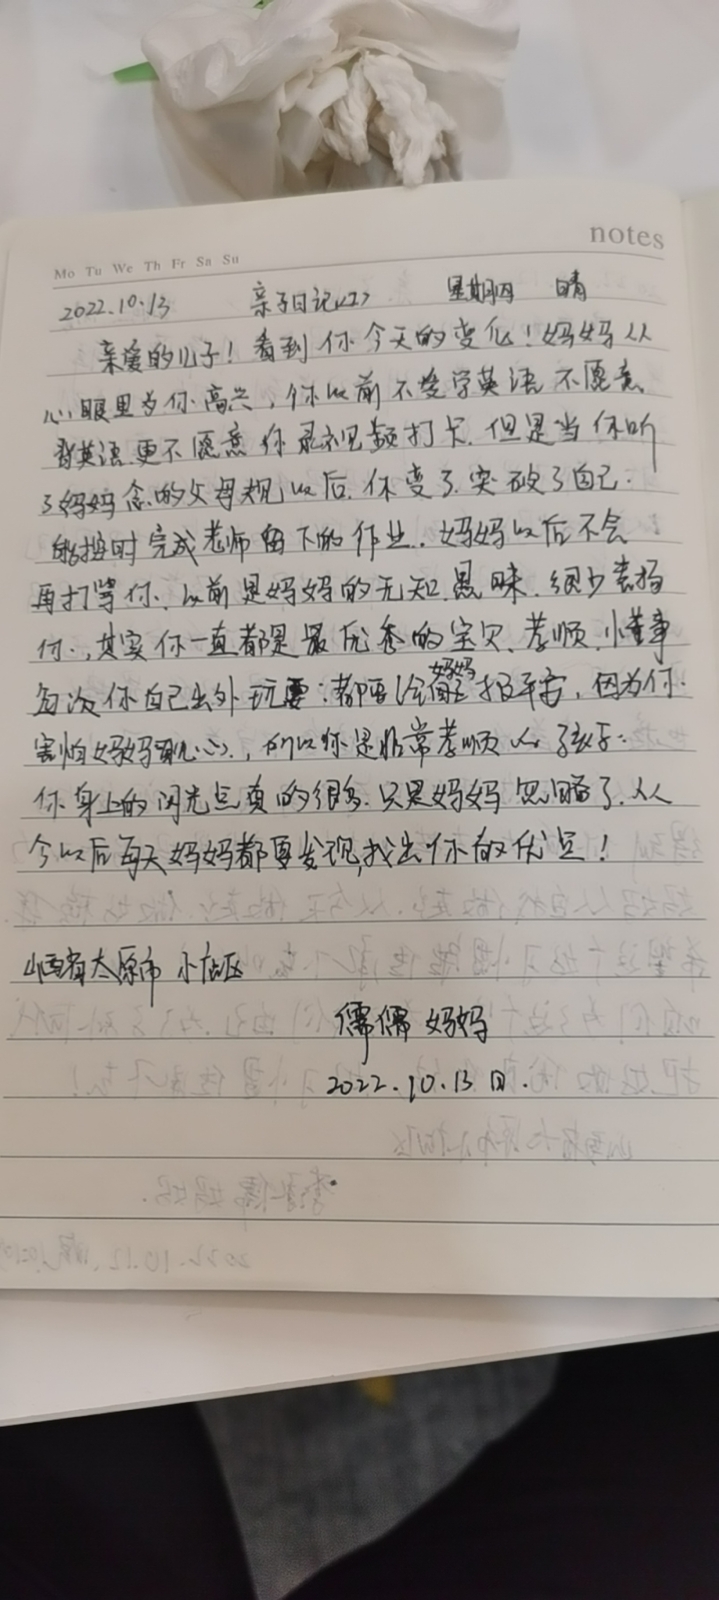 notes
Mo Tu We Th Fr Sa Su
2022.10.13 亲子日记 星期四 晴
亲爱的儿子！看到你今天的变化！妈妈从
心眼里为你高兴，你以前不爱学英语不愿意
背英语.更不愿意你录视频打卡.但是当你听
了妈妈念的父母规以后.你变了.突破了自己.
能按时完成老师留下的作业.妈妈以后不会
再打骂你.以前是妈妈的无知.愚昧.很少表扬
你.，其实你一直都是最优秀的宝贝.孝顺.小董事
每次你自己出外玩耍:都要给妈妈报平安，因为你.
害怕妈妈担心.，所以你是非常孝顺的孩子:
你身上的闪光点真的很多.只是妈妈忽略了.从
今以后每天妈妈都要发现,找出你的优点！
山西省太原市 小店区
儒儒妈妈
2022.10.13日.